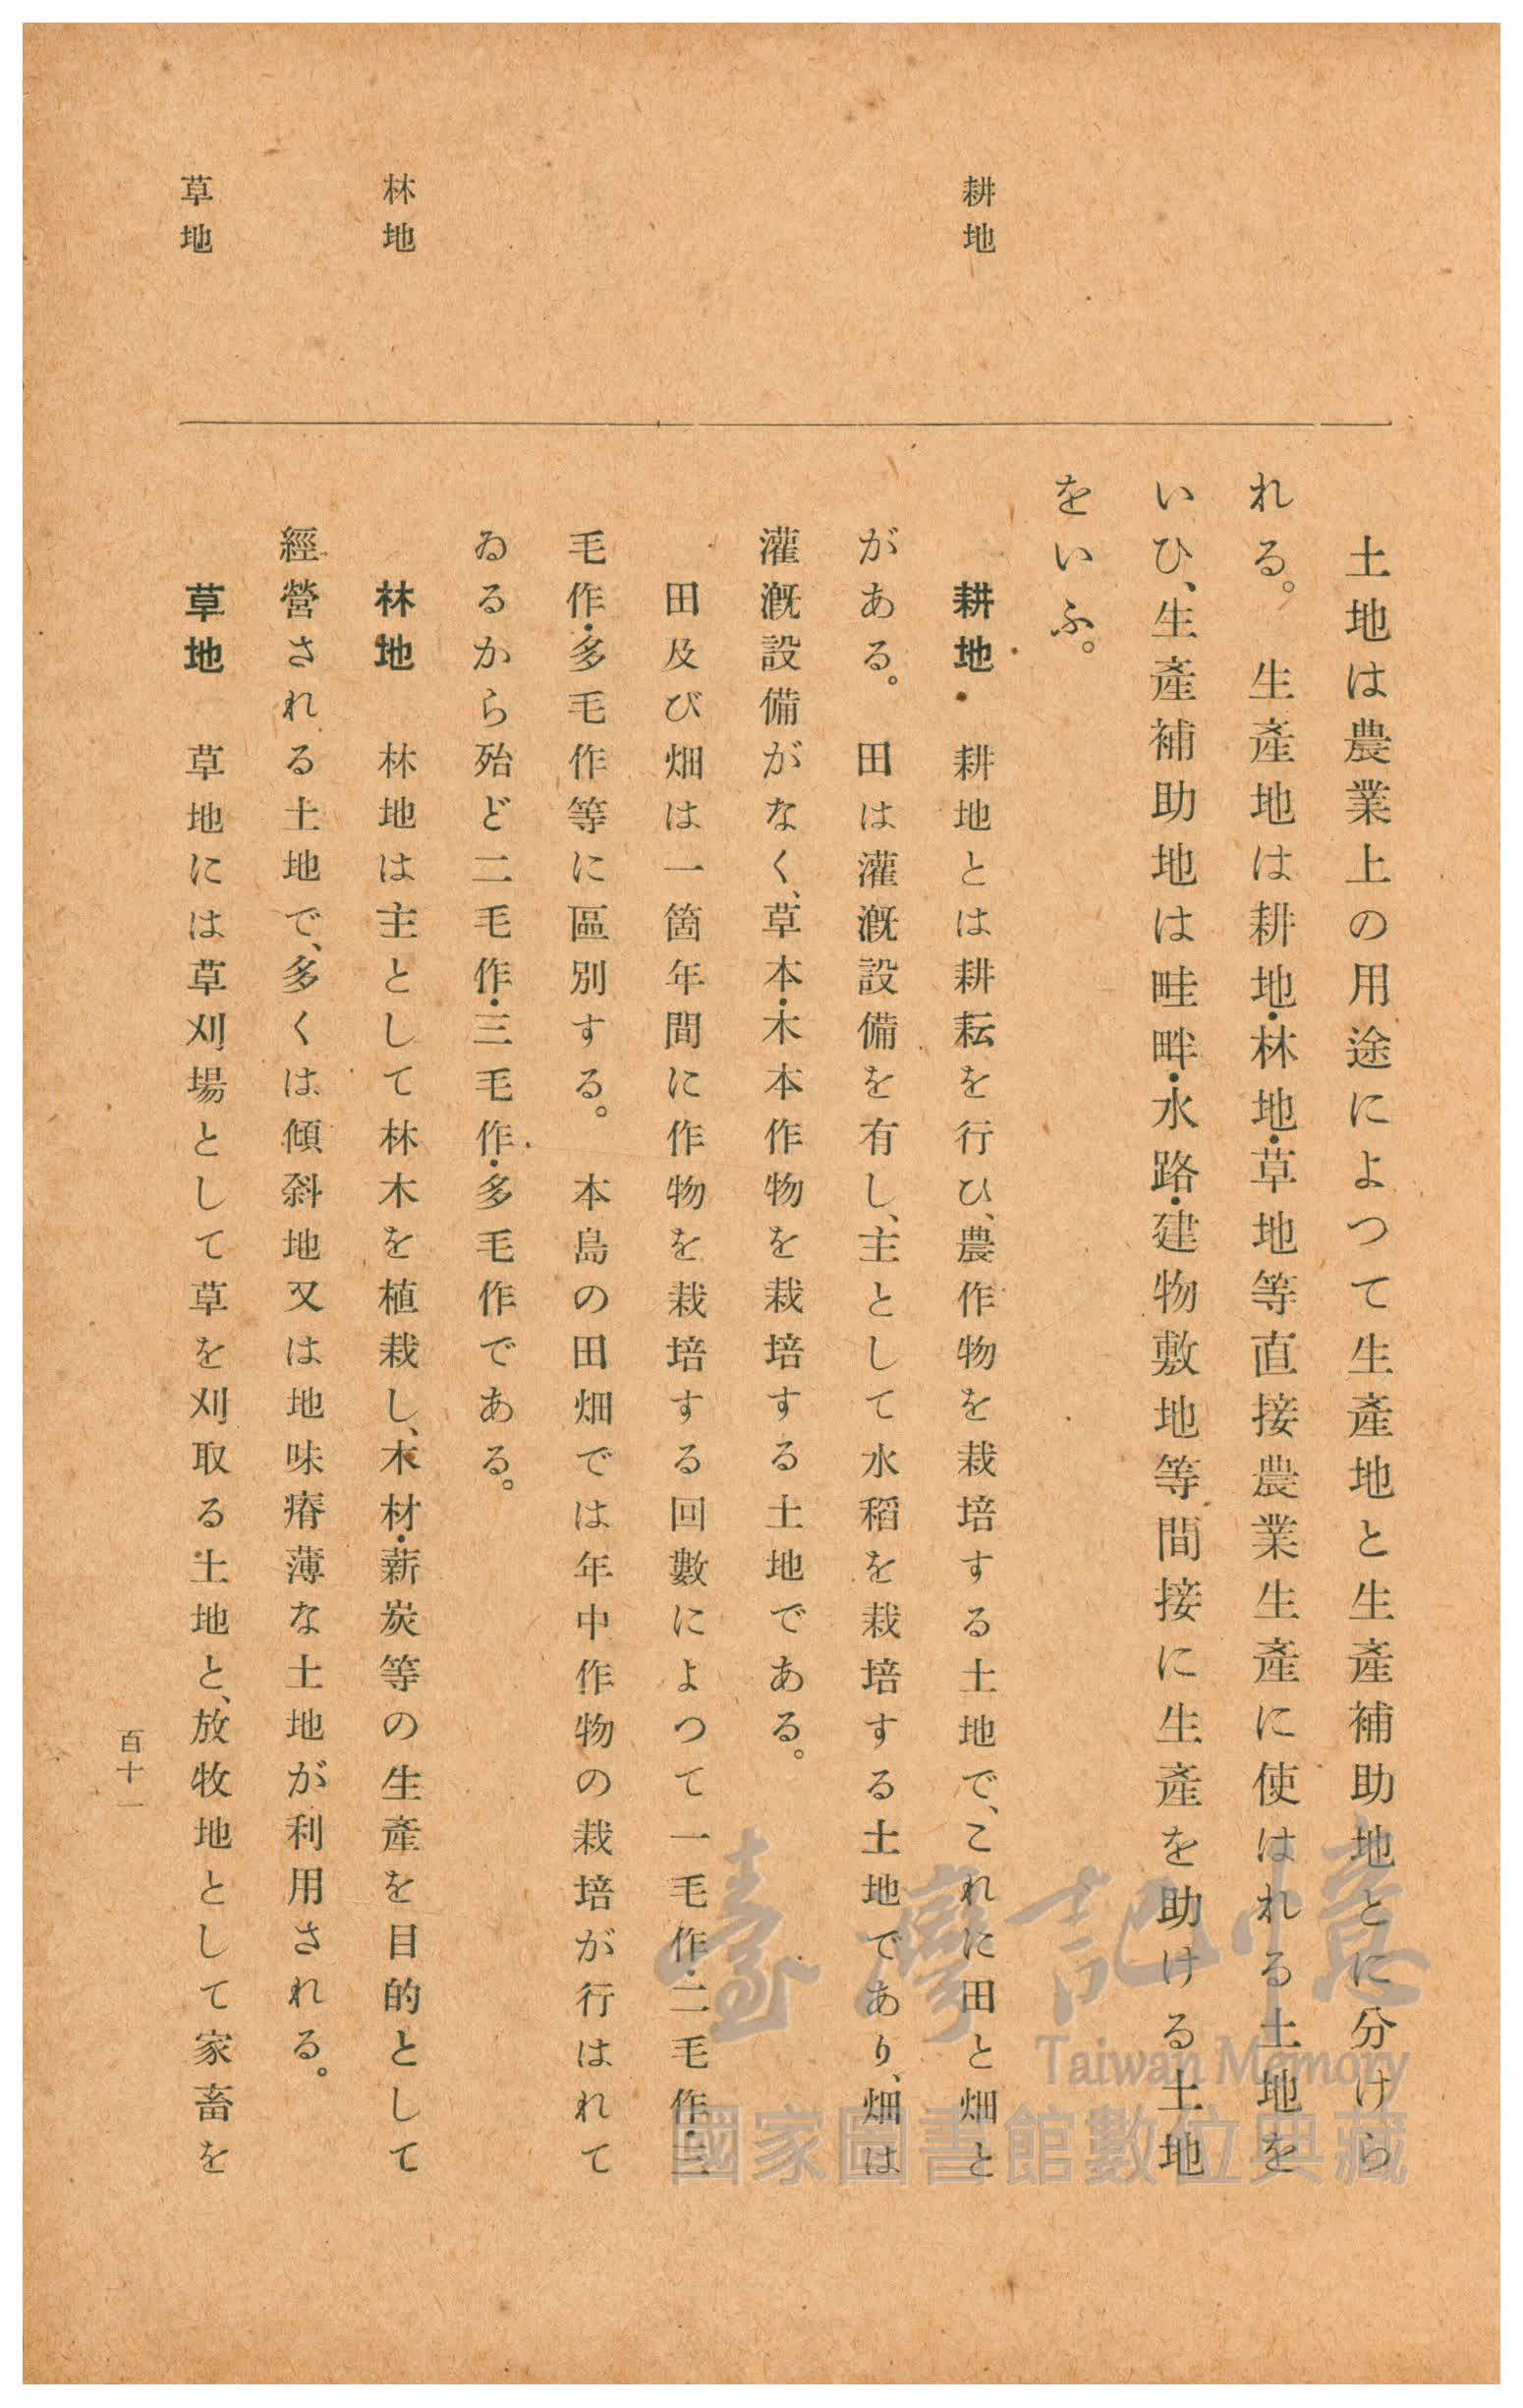 耕地
林地
草地
土地は農業上の用途によつて生產地と生產補助地とに分けら
れる。　生產地は耕地・林地・草地等直接農業生產に使はれる土地を
いひ、生產補助地は畦畔・水路・建物敷地等間接に生產を助ける土地
をいふ。
耕地　耕地とは耕耘を行ひ、農作物を栽培する土地で、これに田と畑と
がある。　田は灌漑設備を有し、主として水稻を栽培する土地であり、畑は
灌漑設備がなく、草本・木本作物を栽培する土地である。
田及び畑は一箇年間に作物を栽培する回數によつて一毛作・二毛作・三
毛作・多毛作等に區別する。　本島の田畑では年中作物の栽培が行はれて
ゐるから殆ど二毛作・三毛作・多毛作である。
林地　林地は主として林木を植栽し、木材・薪炭等の生產を目的として
經營される土地で、多くは傾斜地又は地味瘠薄な土地が利用される。
草地　草地には草刈場として草を刈取る土地と、放牧地として家畜を
百十一
臺灣記憶
Taiwan Memory
國家圖書館數位典藏